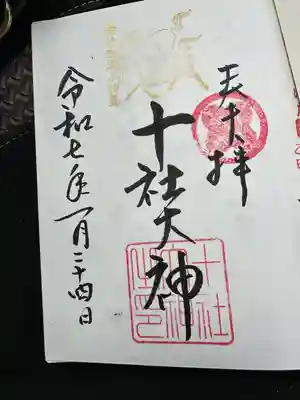 奉拝
十社大神
令和七年一月二十四日
十社
大神
之印